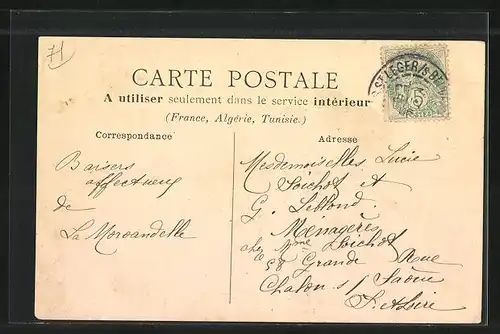 71
CARTE POSTALE
A utiliser seulement dans le service intérieur
(France, Algérie, Tunisie.)
Correspondance
Adresse
Baisers
affectueux
de
La Morcandelle
Mesdemoiselles Lucie
Soichot et
G. Leblond
Ménagères
chez Mme Soichot
58 Grande Rue
Chalon s/ Saône
S. & Loire
ST LEGER/S B
5
POSTES